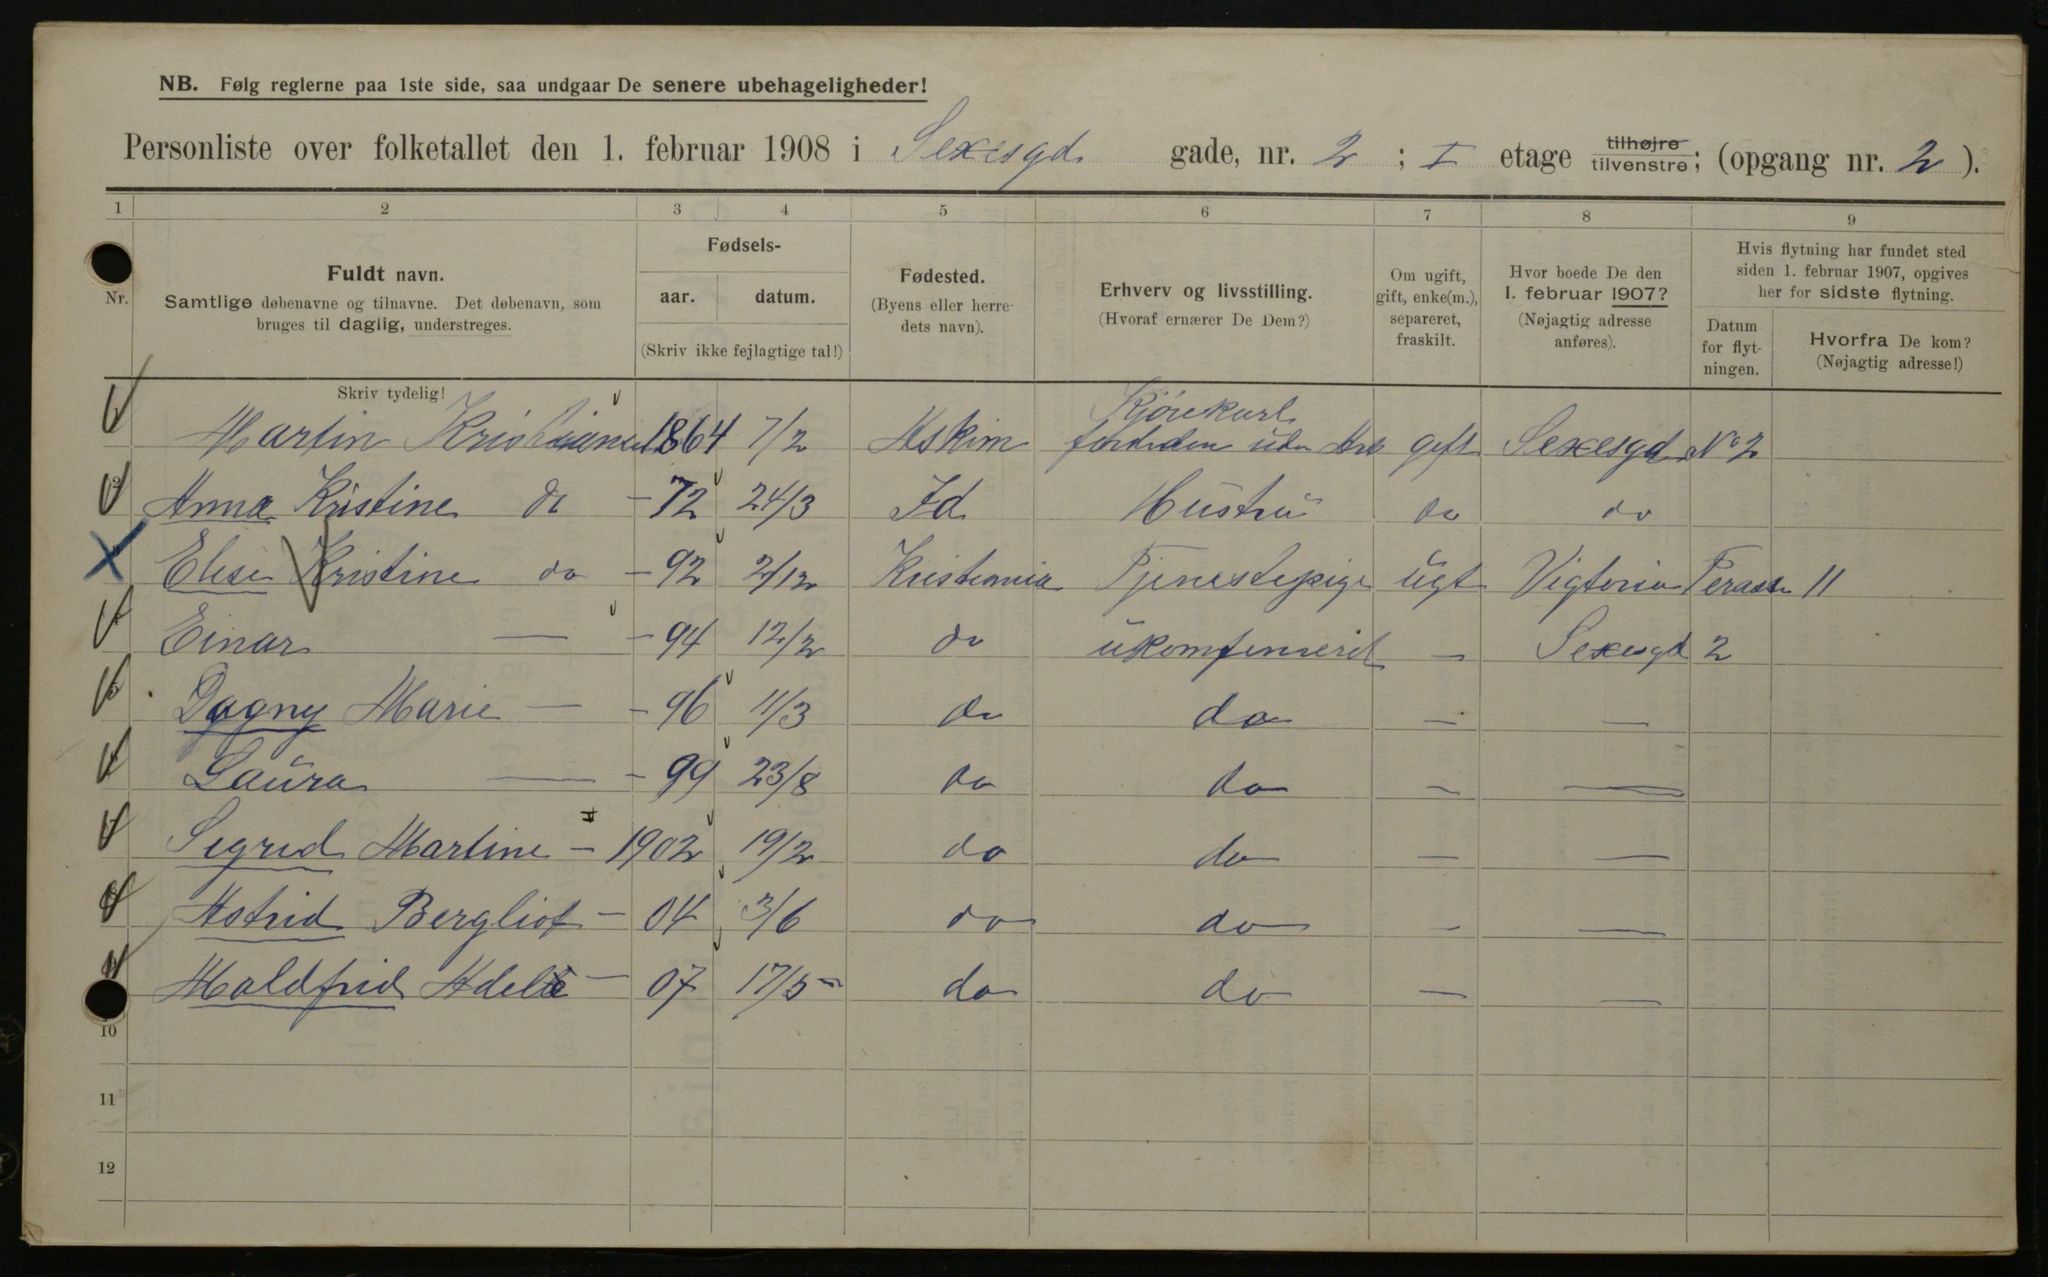 NB. Følg reglerne paa 1ste side, saa undgaar De senere ubehageligheder!
Personliste over folketallet den 1. februar 1908 i Sexesgd gade, nr. 2 ; I etage tilhøjre tilvenstre; (opgang nr. 2 ).
1 2 3 4 5 6 7 8 9
Nr.
Fuldt navn.
Samtlige døbenavne og tilnavne. Det døbenavn, som
bruges til daglig, understreges.
Fødsels-
aar. datum.
(Skriv ikke fejlagtige tal!)
Fødested.
(Byens eller herre-
dets navn).
Erhverv og livsstilling.
(Hvoraf ernærer De Dem?)
Om ugift,
gift, enke(m.),
separeret,
fraskilt.
Hvor boede De den
1. februar 1907?
(Nøjagtig adresse
anføres).
Hvis flytning har fundet sted
siden 1. februar 1907, opgives
her for sidste flytning.
Datum
for flyt-
ningen.
Hvorfra De kom?
(Nøjagtig adresse!)
Skriv tydelig!
Kjörekarl
Martin 1864 7/2 Askim uden Arb gift Sexesgd No 2
Anna Kristine do - 72 24/3 Id Hustru do do
Elise Kristine do - 92 2/12 Kristiania Tjenestepige ugt Vigtoria Terasse 11
Einar — - 94 12/2 do ukomfimeret — Sexesgd 2
Dagny Marie — - 96 11/3 do do — —
Laura — - 99 23/8 do do — —
Sigrid Martine - 1902 19/2 do do — —
Astrid Bergliot - 04 3/6 do do - —
Maldfrid Adele - 07 17/5 do do — —
10
11
12